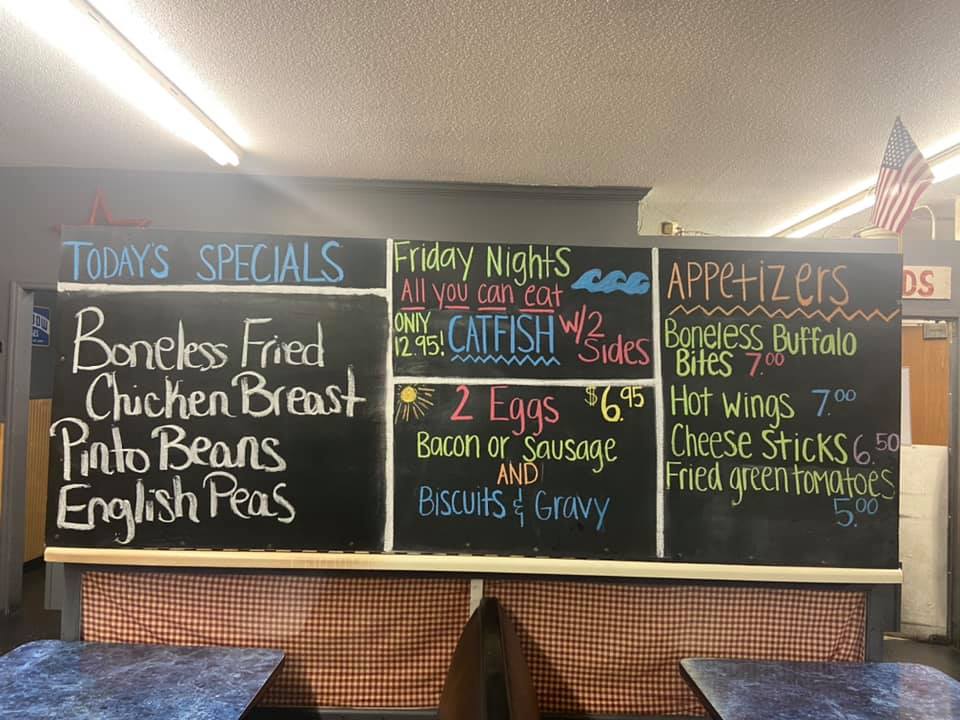 TODAY'S SPECIALS
Boneless Fried
Chicken Breast
Pinto Beans
English Peas
Friday Nights
All you can eat
ONLY
12.95!
CATFISH
w/2
Sides
2 Eggs
$6.95
Bacon or Sausage
AND
Biscuits & Gravy
APPETIZERS
Boneless Buffalo
Bites 7.00
Hot wings 7.00
Cheese Sticks 6.50
Fried green tomatoes
5.00
DS